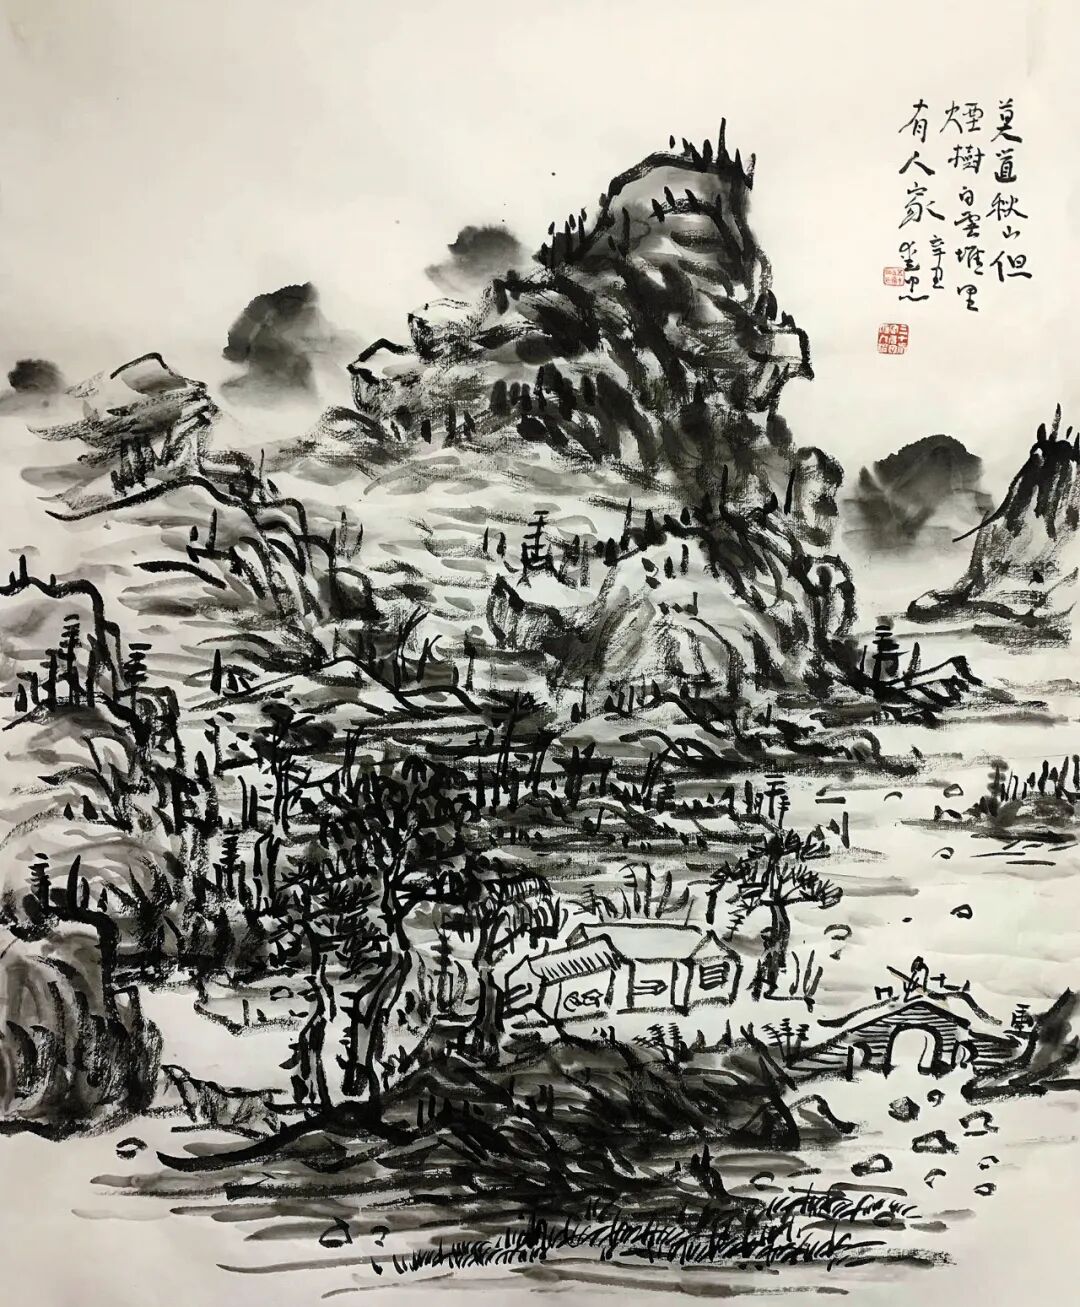 莫道秋山但
烟樹白雲堆里
有人家 辛丑